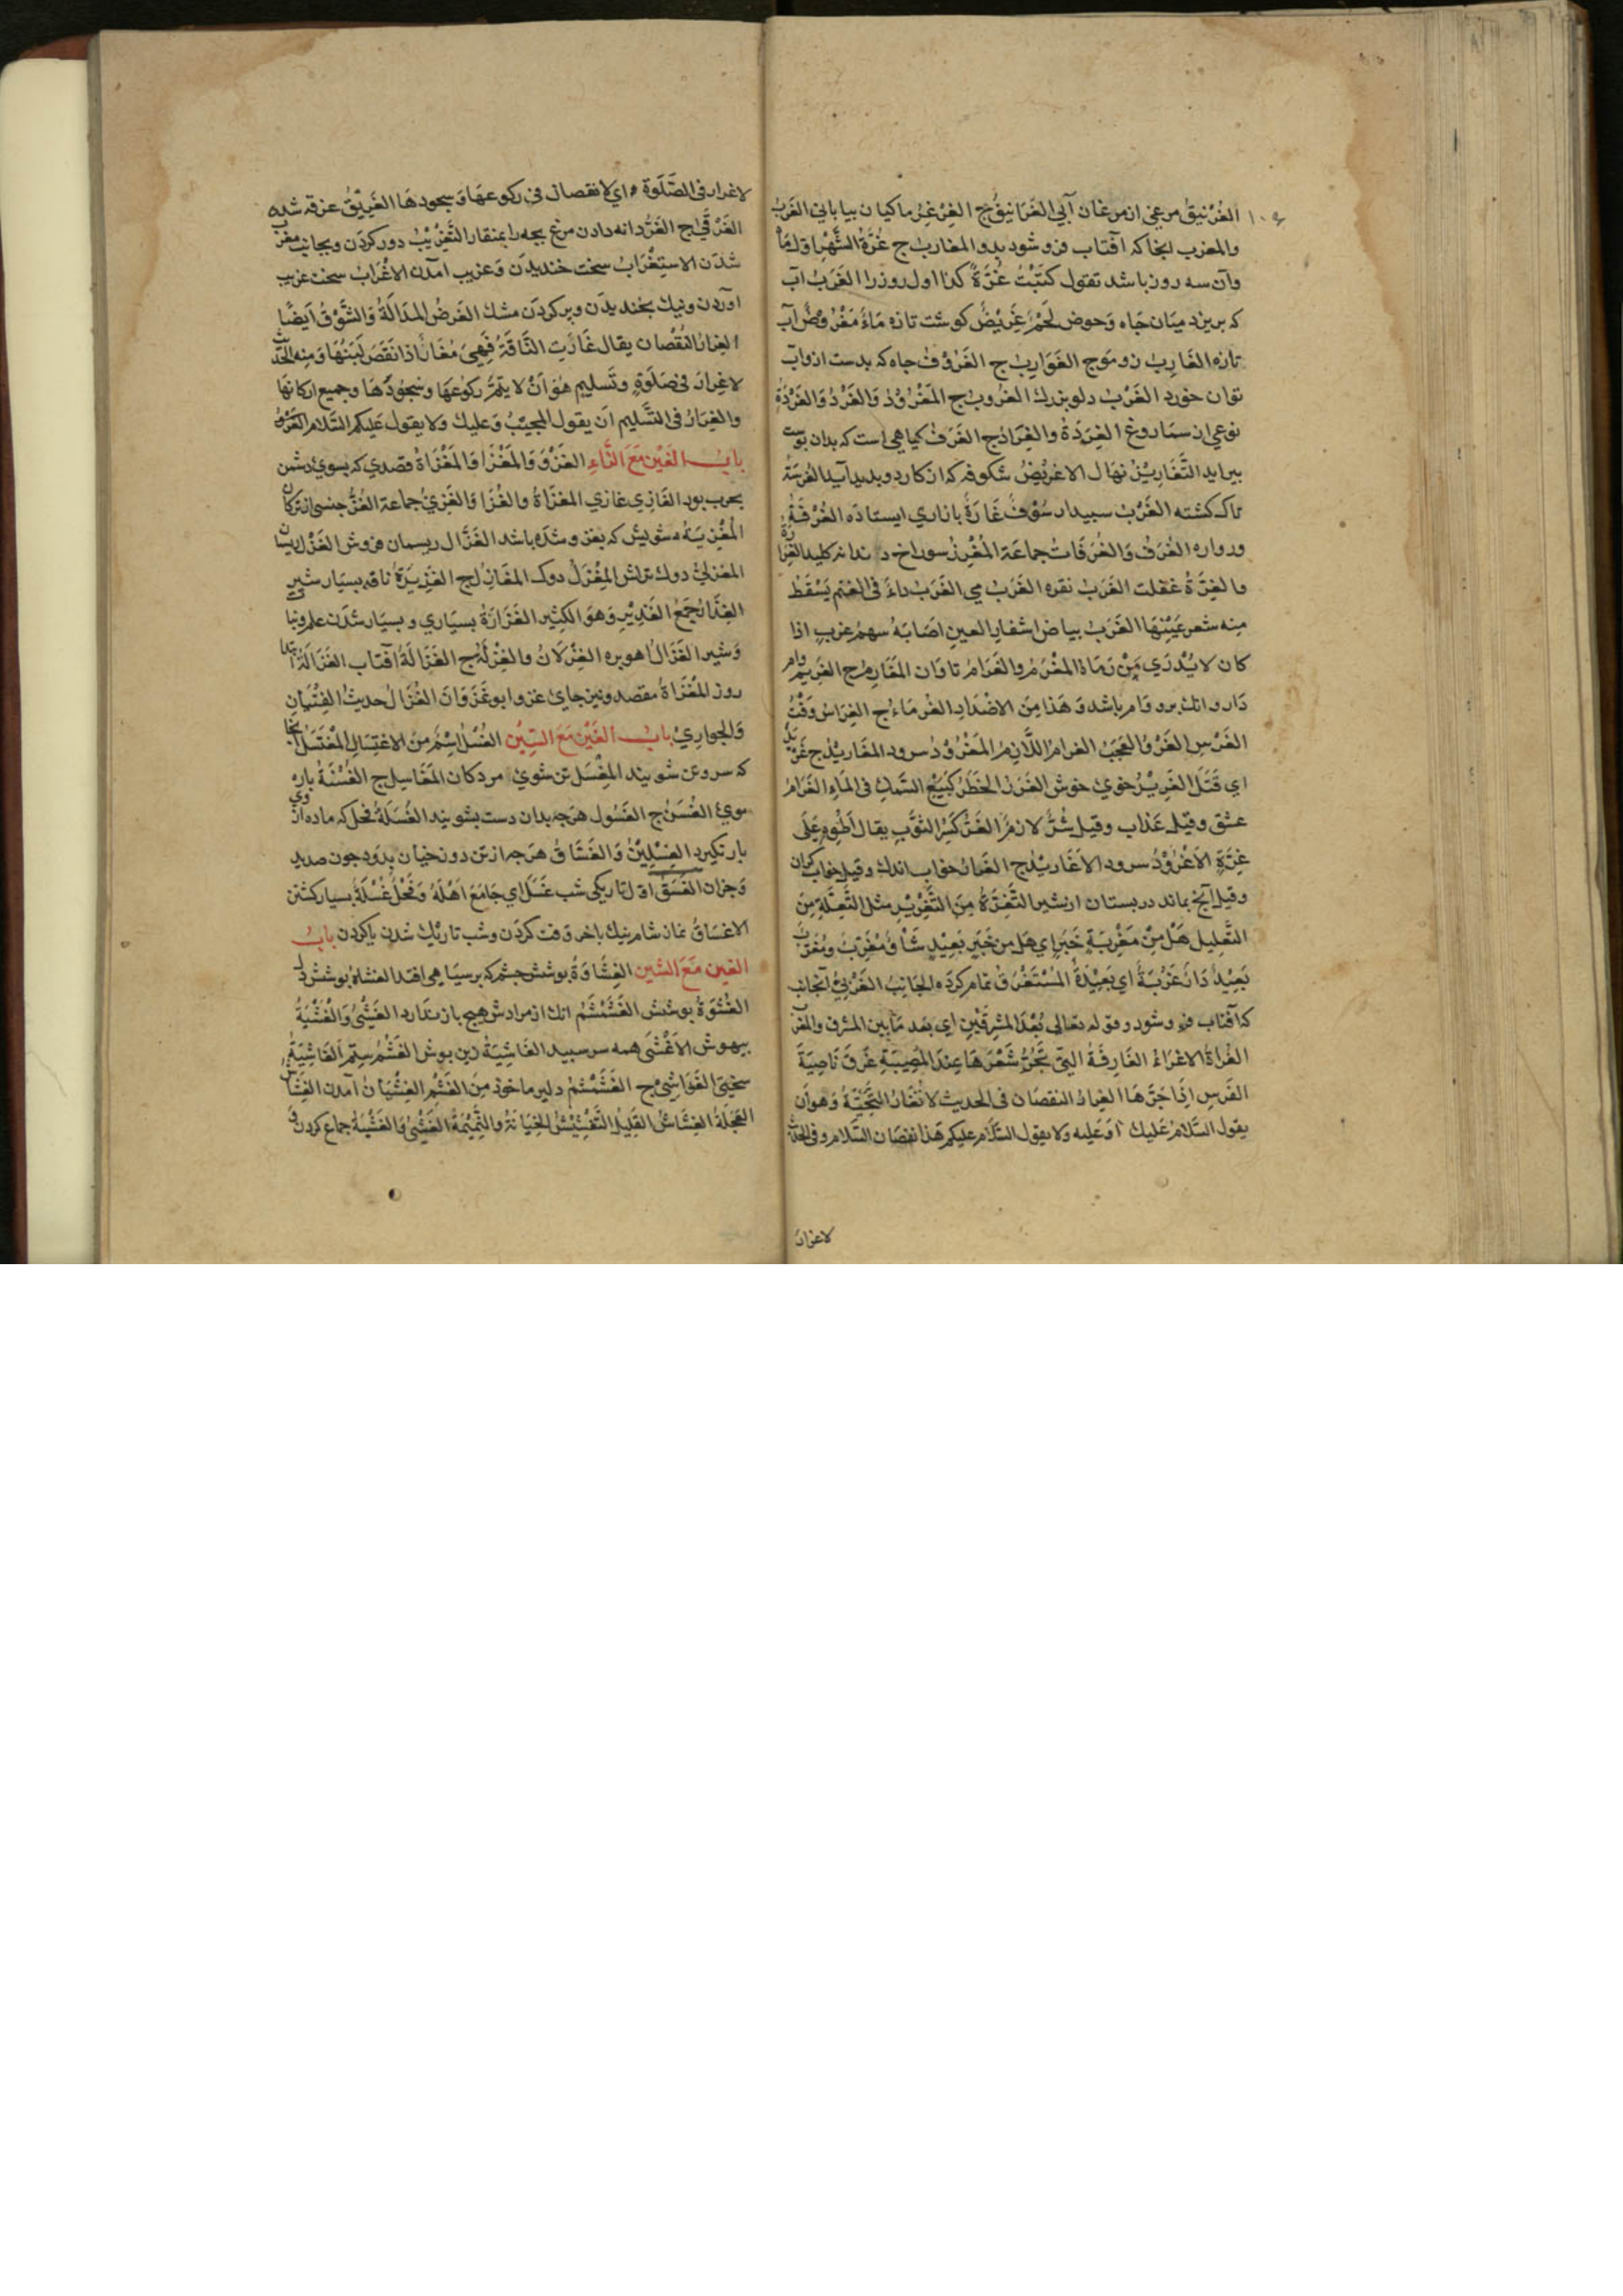 الغُرْنيقُ مرغی از مرغان آبی الغَرَانيقُ ج الغِرْغِرُ ماکیان بیابانی الغَرْبُ
والمغرب انجا که آفتاب فرو شود بدو المغارب ج غُرَّةُ الشَّهْرِ اوّلُهَا
وآن سه روز باشد تقول كَتَبْتُ غُرَّةَ كذا اول روز را الغَرَبُ آب
که بریزد میان چاه وحوض لَحْمٌ غَرِيْضٌ کوشت تازه مَاءٌ مَغْرُوضٌ آب
تازه الغَارِبُ زو موج الغَوَارِبُ ج الغَرُوْفُ چاه که بدست ازو آب
توان خورد الغَرْبُ دلو بزرك الغُرُوبُ ج المَغْرُوْدُ وَالغَرْدُ وَالغَرْدَةُ
نوعی از سماروغ الغِرَدَةُ والغِرَادُ ج الغَرَفُ کیاهی است که بدان پوست
بیرایند التَّغَارِيْزُ نهال الاغرِيْضُ شکوفه که از کاردو بدید آید الغُرسَةُ
تاك کشته الغَرْبُ سپیدار سُوْقٌ غَارَةٌ بازاری ایستاده الغُرْفَةُ
ورواره الغُرَفُ وَالغُرَفَاتُ جماعَة المُغْرِزُ سوراخ دندانه کلید
والغِرَّةُ غفلت الغَرَبُ نقره الغَرَبُ می الغَرَبُ داءٌ فى الغنم يَسْقُطُ
مِنه شعر عَيْنِهَا الغَرَبُ بياض اشفار العين اصَابَهُ سهمُ غربٍ اذا
كان لا يُدْرَي مَنْ رَمَاهُ المَغْرَمُ والغَرَامُ تاوان المَغَارِمُ ج الغَريم وام
دَار وانك برو وام باشد وَهَذا مِنَ الاضْدَادِ الغُرمَاءُ ج الغِرَاسُ وَقْتُ
الغَرْسِ الغَرْوُ العَجَبُ الغرام اللَّازِمُ المَغْرُوْدُ سرود المغاريدُ ج
اي قَتَلَ الغَرِيْرُ خوي خوش الغَرَرُ الخَطَرُ كَبَيْعِ السَّمَكِ فى المَاءِ الغَرَامُ
عشق وقيل عَذاب وقيل شَرٌّ لازمٌ الغَرُّ كَسْرُ الثَّوْبِ يقال اَطْوِهِ عَلَى
غَرِّهِ الاُغْرُوْدُ سرود الاَغَارِيْدُ ج الغِرَارُ خواب اندك وقيل خواب کران
وقیل آنچ بماند در پستان از شیر التَّغِرَّةُ مِنَ التَّغْرِيْرِ مثل التَّعِلَّةِ مِنَ
التَّعْلِيلِ هَلْ مِنْ مَغْرِبَةِ خَبَرٍ اي هَل من خَبَرٍ بَعِيْدٍ شَأْوٌ مُغَرِّبٌ ومُغَرَّبٌ
بَعِيْدٌ دَارٌ غَرْبَةٌ اي بَعِيْدَةٌ المُسْتَغْرَقُ تمام کرده الجَانِبُ الغَرْبِيُّ آنجانب
که آفتاب فرو شود وقوله تعالى بُعْدَ المَشْرِقَيْنِ اي بُعد مَا بين المشرق والمغرب
الغُرَاةُ الاغرَاءُ الغَارِفَةُ الّتِي تَجُزُّ شَعْرَهَا عِندَ المُصِيبَةِ غَرَفَ نَاصِيَةَ
الفَرَسِ اِذَا جَزَّهَا الغِرارُ النقصَان فى الحديث لا تُغَارُّ التَّحِيَّةُ وَهو اَن
يقول السَّلامُ عَلَيك اَوعَليه ولا يقول السَّلام عليكم هَذا نقصَان السَّلام وفى الحَدِيث
لاغرار
لاغرار فى الصَّلوة اي لا نقصان فى رکوعهَا وَسجودهَا الغَرِيْقُ غرقه شده
الغَرْقَى ج الغَرُّ دانه دادن مرغ بچه را بمنقار التَّغْرِيْبُ دور کردن وبجانب مغرب
شدن الاستِغْرَابُ سخت خندیدن وَغریب امدن الاغْرَابُ سخت غریب
اوردن ونیك بخندیدن وپر کردن مشك الغَرَضُ المَلَالَةُ وَالشَّوْقُ اَيضًا
الغِرارُ النُّقْصان يقال غَارَّتِ النَّاقَةُ فَهِيَ مُغَارٌّ اذا نَقَصَ لَبَنُهَا وَمِنه الحَدِيثُ
لاغِرَارَ فى صَلوةٍ وتَسليمٍ هُوَ اَنْ لا يُتِمَّ رکوعهَا وسُجُوْدَهَا وجميع ارکانهَا
والغِرَارُ فى التَّسليم اَن يقول المجيبُ وَعليك ولا يقول عَليكم السَّلام
بابُ الغَيْن مَعَ الزَّاءِ الغَزْوُ وَالمَغْزَا وَالمَغْزَاةُ قصدي که بسوي دشمن
بحرب بود الغَازِي غازي الغزَاةُ والغُزَّا وَالغَزِيُّ جماعة الغُزُّ جنسی از ترکان
المُغْزِيَةُ شویش که بغزو شده باشد الغَزَّال ریسمان فروش الغَزْل ریسمان
المغزليّ دوك تراش المِغْزَلُ دوك المغَازِلُ ج الغَزِيْرَةُ ناقه بسیار شیر
الغِزَارُ جَمْعُ الغَزِيْرِ وَهوَ الكثير الغَزَارَةُ بسیاري وبسیار شدن علم
وَشير الغَزَالُ اهوبره الغِزْلَانُ والغِزْلَةُ ج الغَزَالَةُ آفتاب الغَزَالَةُ
روز المَغْزَاةُ مقصد ونیز جاي غزو ابو غَزْوَانَ الغَزَلُ حديثُ الفِتْيَانِ
وَالجواري بابُ الغَيْن مَعَ السِّيْنِ الغُسْلُ اِسْمٌ مِنَ الاغتِسَالِ المُغْتَسَلُ انجا
که سر وتن شویند المِغْسَل تن شوي مردکان المَغَاسِل ج الغُسْنَةُ پاره
موي الغُسَنُ ج الغَسُول هرچه بدان دست بشویند الغُسَلَةُ فحل که ماده از وي
بار نکیرد الغِسْلِيْنُ وَالغَسَّاقُ هرچه از تن دوزخیان بدود چون صدید
وَجزان الغَسَقُ اول تاریکی شب غَسَلَ اي جَامَعَ اَهْلَهُ وَفَحْلٌ غُسْلَةٌ بسیار کشتن
الاغسَاقُ نماز شام نیك باخر وَقت کردن وشب تاریك شدن یا کردن بابُ
الغين مَعَ الشين الغِشَاوَةُ پوشش چشم که بر سیاهی افتد الغشاءُ پوشش دل
الغُشْوَةُ پوشش الغَشَمْشَمُ انك از مرادش هیچ باز ندارد الغَشْيُ وَالغَشْيَةُ
بیهوش الاَغْشَى همه سر سپید الغَاشِيَةُ زین پوش الغَشْمُ ستم الغَاشِيَةُ
سختی الغَوَاشِيْ ج الغَشَمْشَمُ دلیر ماخوذ مِنَ الغَشْمِ الغِشْيَانُ آمدن الغِشَاشُ
العَجَلَةُ الغِشَاشُ القليل التَّغْشِيْشُ الخِيَانَةُ والنَّمِيْمَةُ الغَشْيُ وَالغَشْيَةُ جماع کردن